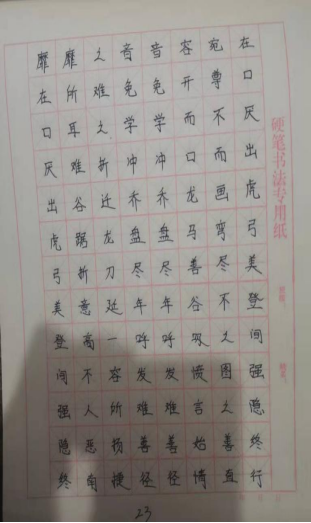 靡靡之音音容宛在
在所难免免开尊口
口耳之学学而不厌
厌难折冲冲口而出
出谷迁乔乔龙画虎
虎踞龙盘盘马弯弓
弓折刀尽尽善尽美
美意延年年谷不登
登高一呼呼吸之间
间不容发发愤图强
强人所难难言之隐
隐恶扬善善始善终
终南捷径径情直行
硬笔书法专用纸
23